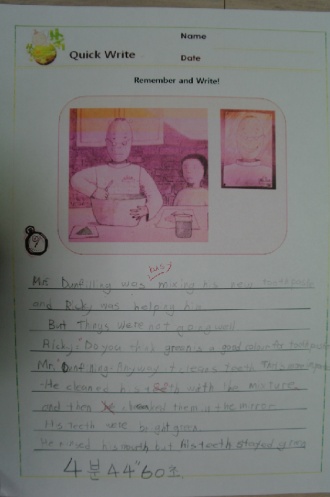 Name
Quick Write
Date
Remember and Write!
busy
Mr. Dunfilling was mixing his new toothpaste
and Ricky was helping him.
But Things were not going well
Ricky: "Do you think green is a good colour for toothpaste
Mr. Dunfilling: Anyway it cleans teeth.
He cleaned his teeth with the mixture,
and then checked them in the mirror.
His teeth were bright green.
He rinsed his mouth but his teeth stayed green
4분 44"60초